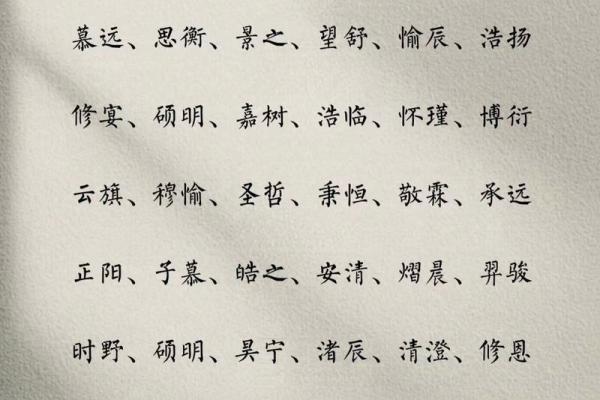 慕远、思衡、景之、望舒、愉辰、浩扬
修宴、硕明、嘉树、浩临、怀瑾、博衍
云旗、穆愉、圣哲、秉恒、敬霖、承远
正阳、子慕、皓之、安清、熠晨、羿骏
时野、硕明、昊宁、渚辰、清澄、修恩